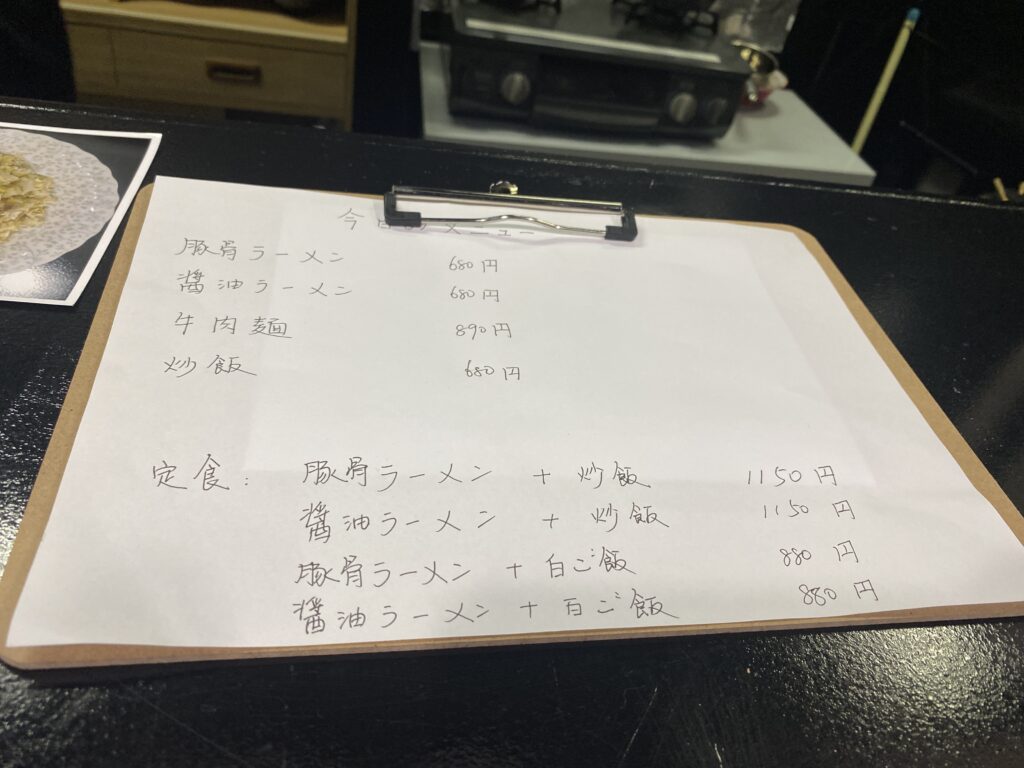 今日のメニュー
豚骨ラーメン 680円
醤油ラーメン 680円
牛肉麺 890円
炒飯 680円
定食: 豚骨ラーメン + 炒飯 1150円
醤油ラーメン + 炒飯 1150円
豚骨ラーメン + 白ご飯 880円
醤油ラーメン + 白ご飯 880円